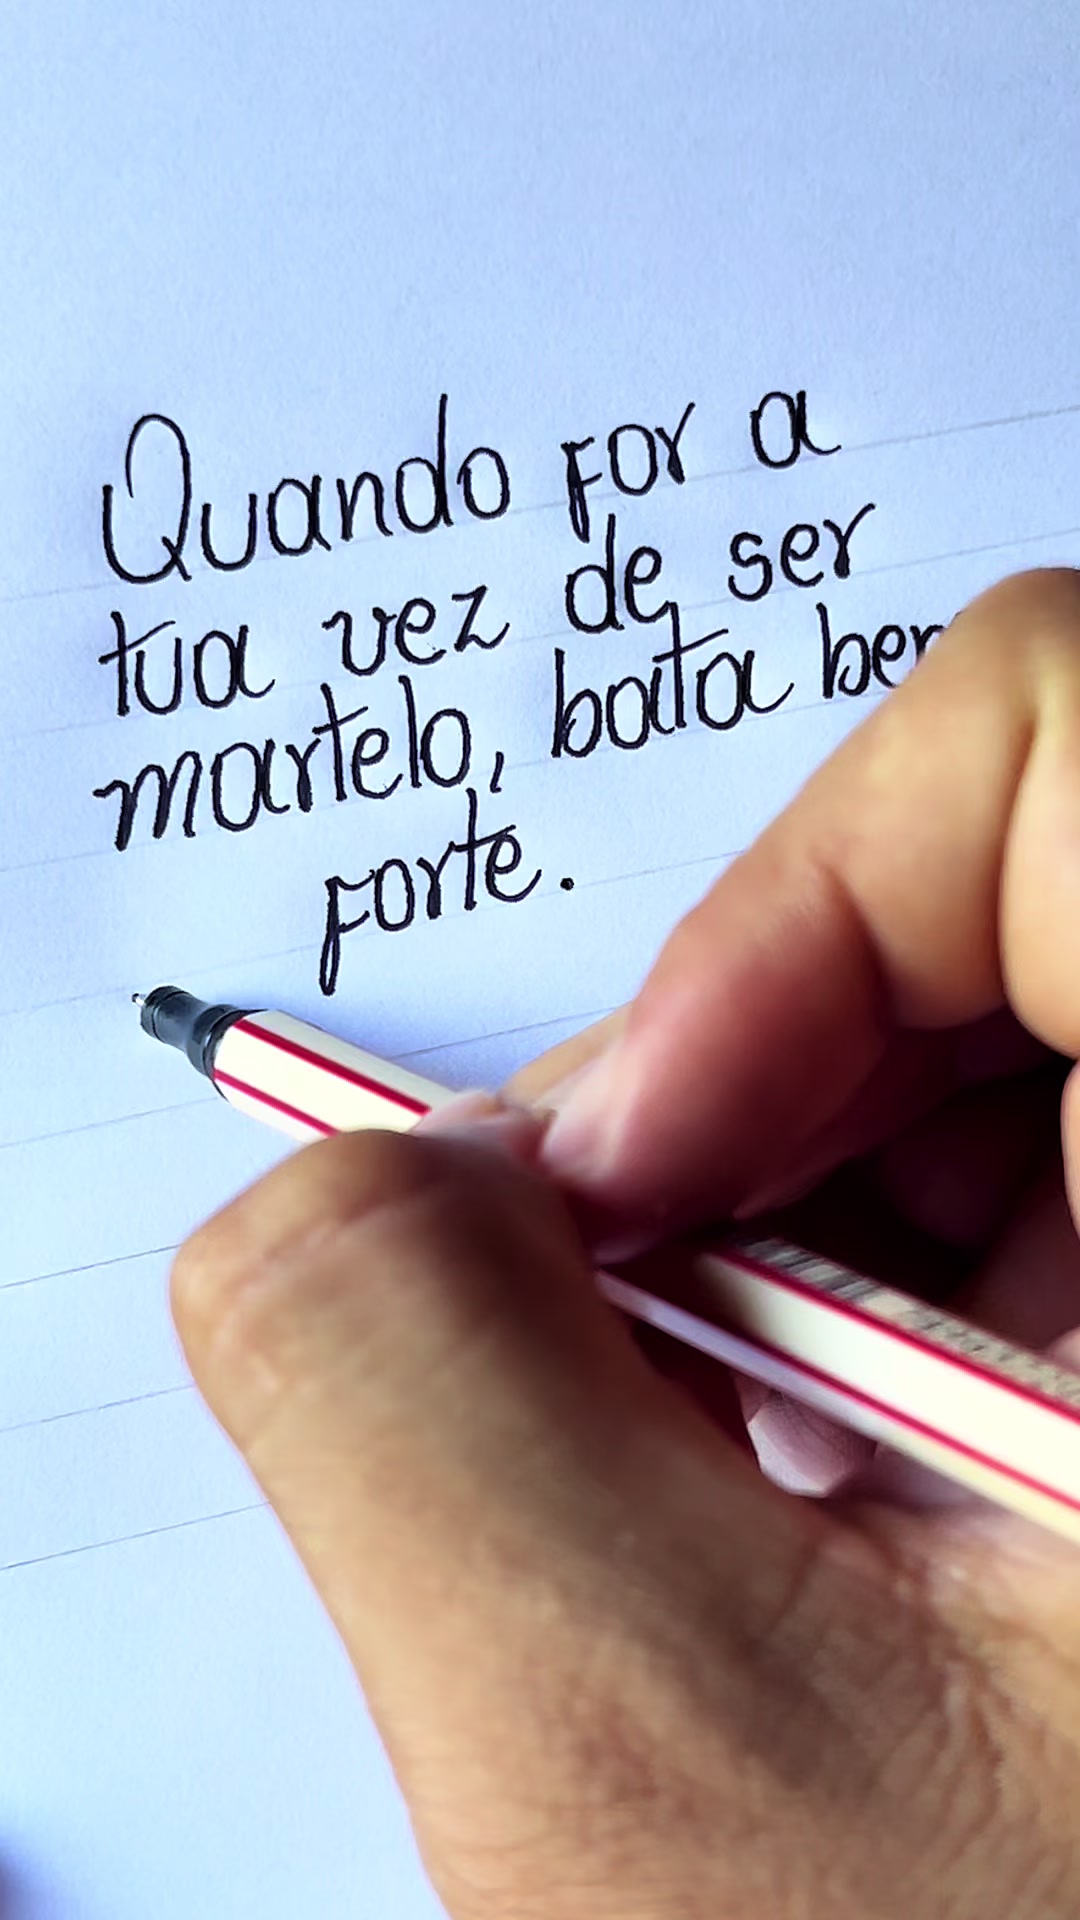 Quando for a
tua vez de ser
martelo, bata bem
forte.